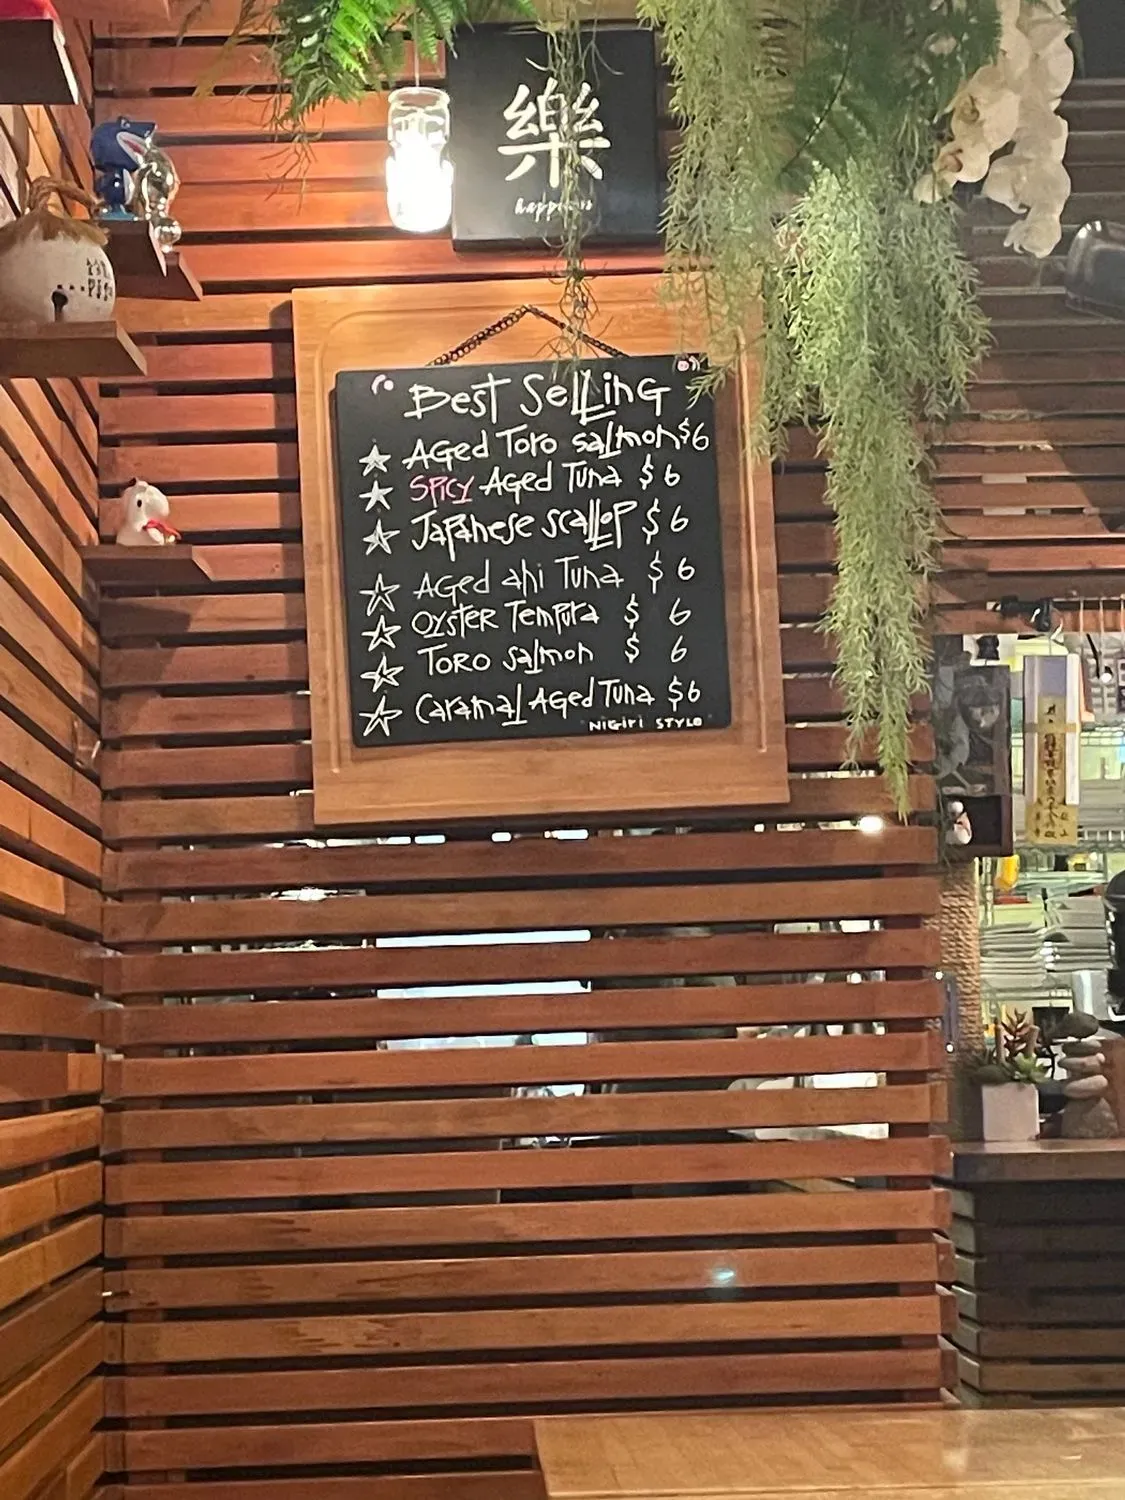 樂
happiness
Best Selling
Aged Toro salmon $6
Spicy Aged Tuna $6
Japanese scallop $6
Aged ahi Tuna $6
Oyster Tempura $6
Toro salmon $6
Caramal Aged Tuna $6
Nigiri Style